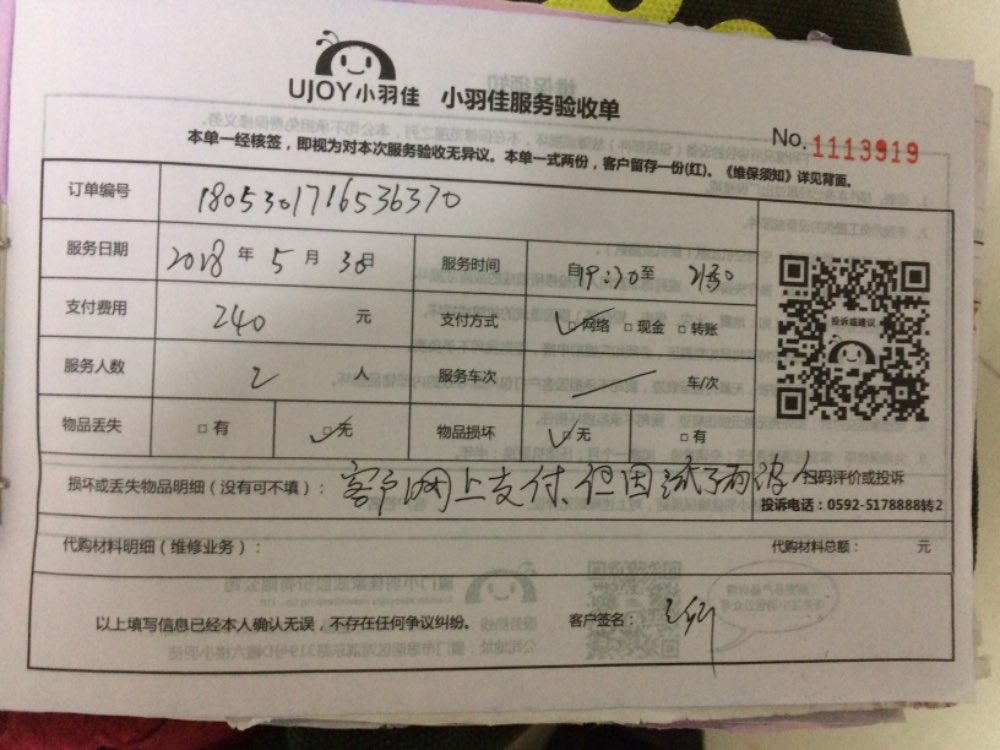 UJOY小羽佳 小羽佳服务验收单
No.1113919
本单一经核签，即视为对本次服务验收无异议。本单一式两份，客户留存一份(红)。《维保须知》详见背面。
订单编号 1805301716536370
服务日期 2018 年 5 月 30 日 服务时间 自19:30至 21:30
支付费用 240 元 支付方式 ☑网络 □现金 □转账
投诉或建议
服务人数 2 人 服务车次 车/次
物品丢失 □有 ☑无 物品损坏 ☑无 □有
损坏或丢失物品明细（没有可不填）： 客户网上支付、但因
扫码评价或投诉
投诉电话：0592-5178888转2
代购材料明细（维修业务）： 代购材料总额： 元
以上填写信息已经本人确认无误，不存在任何争议纠纷。 客户签名：